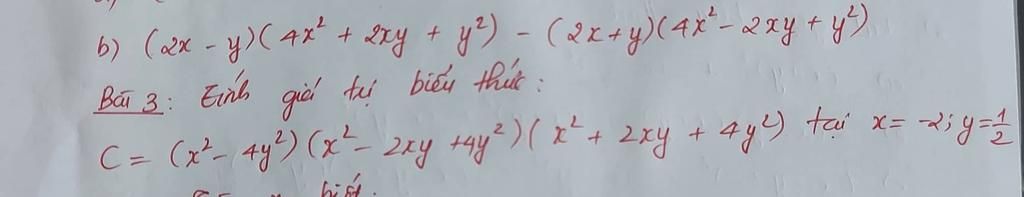 b) (2x - y)(4x² + 2xy + y²) - (2x+y)(4x² - 2xy + y²)
Bài 3: Tính giá trị biểu thức:
C = (x² - 4y²)(x² - 2xy + 4y²)(x² + 2xy + 4y²) tại x = -2; y = 1/2
biết